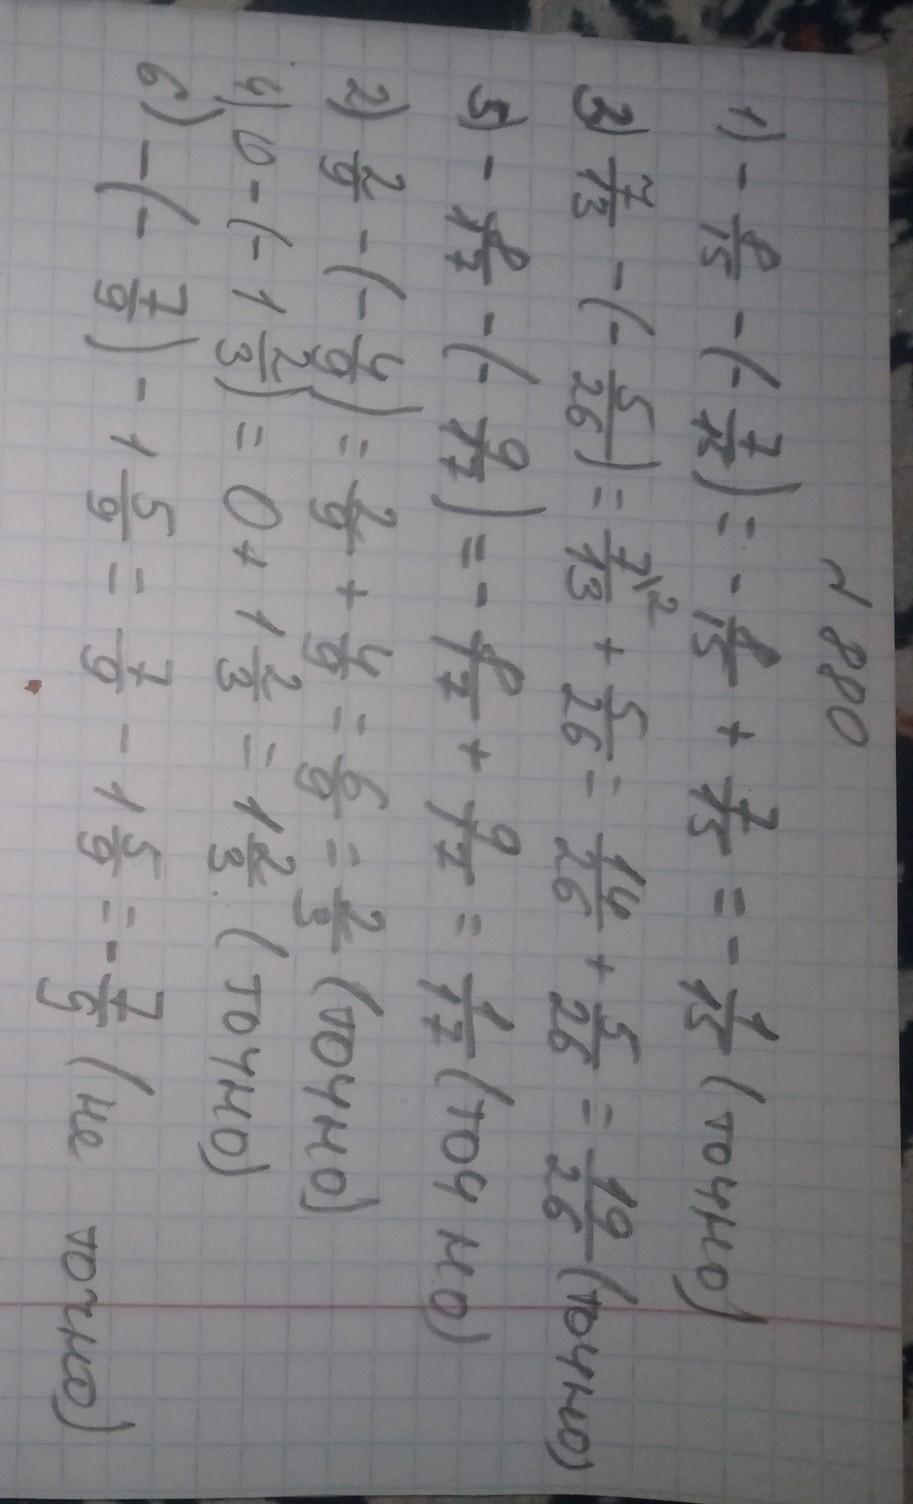 № 880
1) - 8/15 - (- 7/15) = - 8/15 + 7/15 = - 1/15 (точно)
3) 7/13 - (- 5/26) = 7\2/13 + 5/26 = 14/26 + 5/26 = 19/26 (точно)
5) - 8/17 - (- 9/17) = - 8/17 + 9/17 = 1/17 (точно)
2) 2/9 - (- 4/9) = 2/9 + 4/9 = 6/9 = 2/3 (точно)
4) 0 - (- 1 2/3) = 0 + 1 2/3 = 1 2/3. (точно)
6) - (- 7/9) - 1 5/9 = 7/9 - 1 5/9 = - 7/9 (не точно)